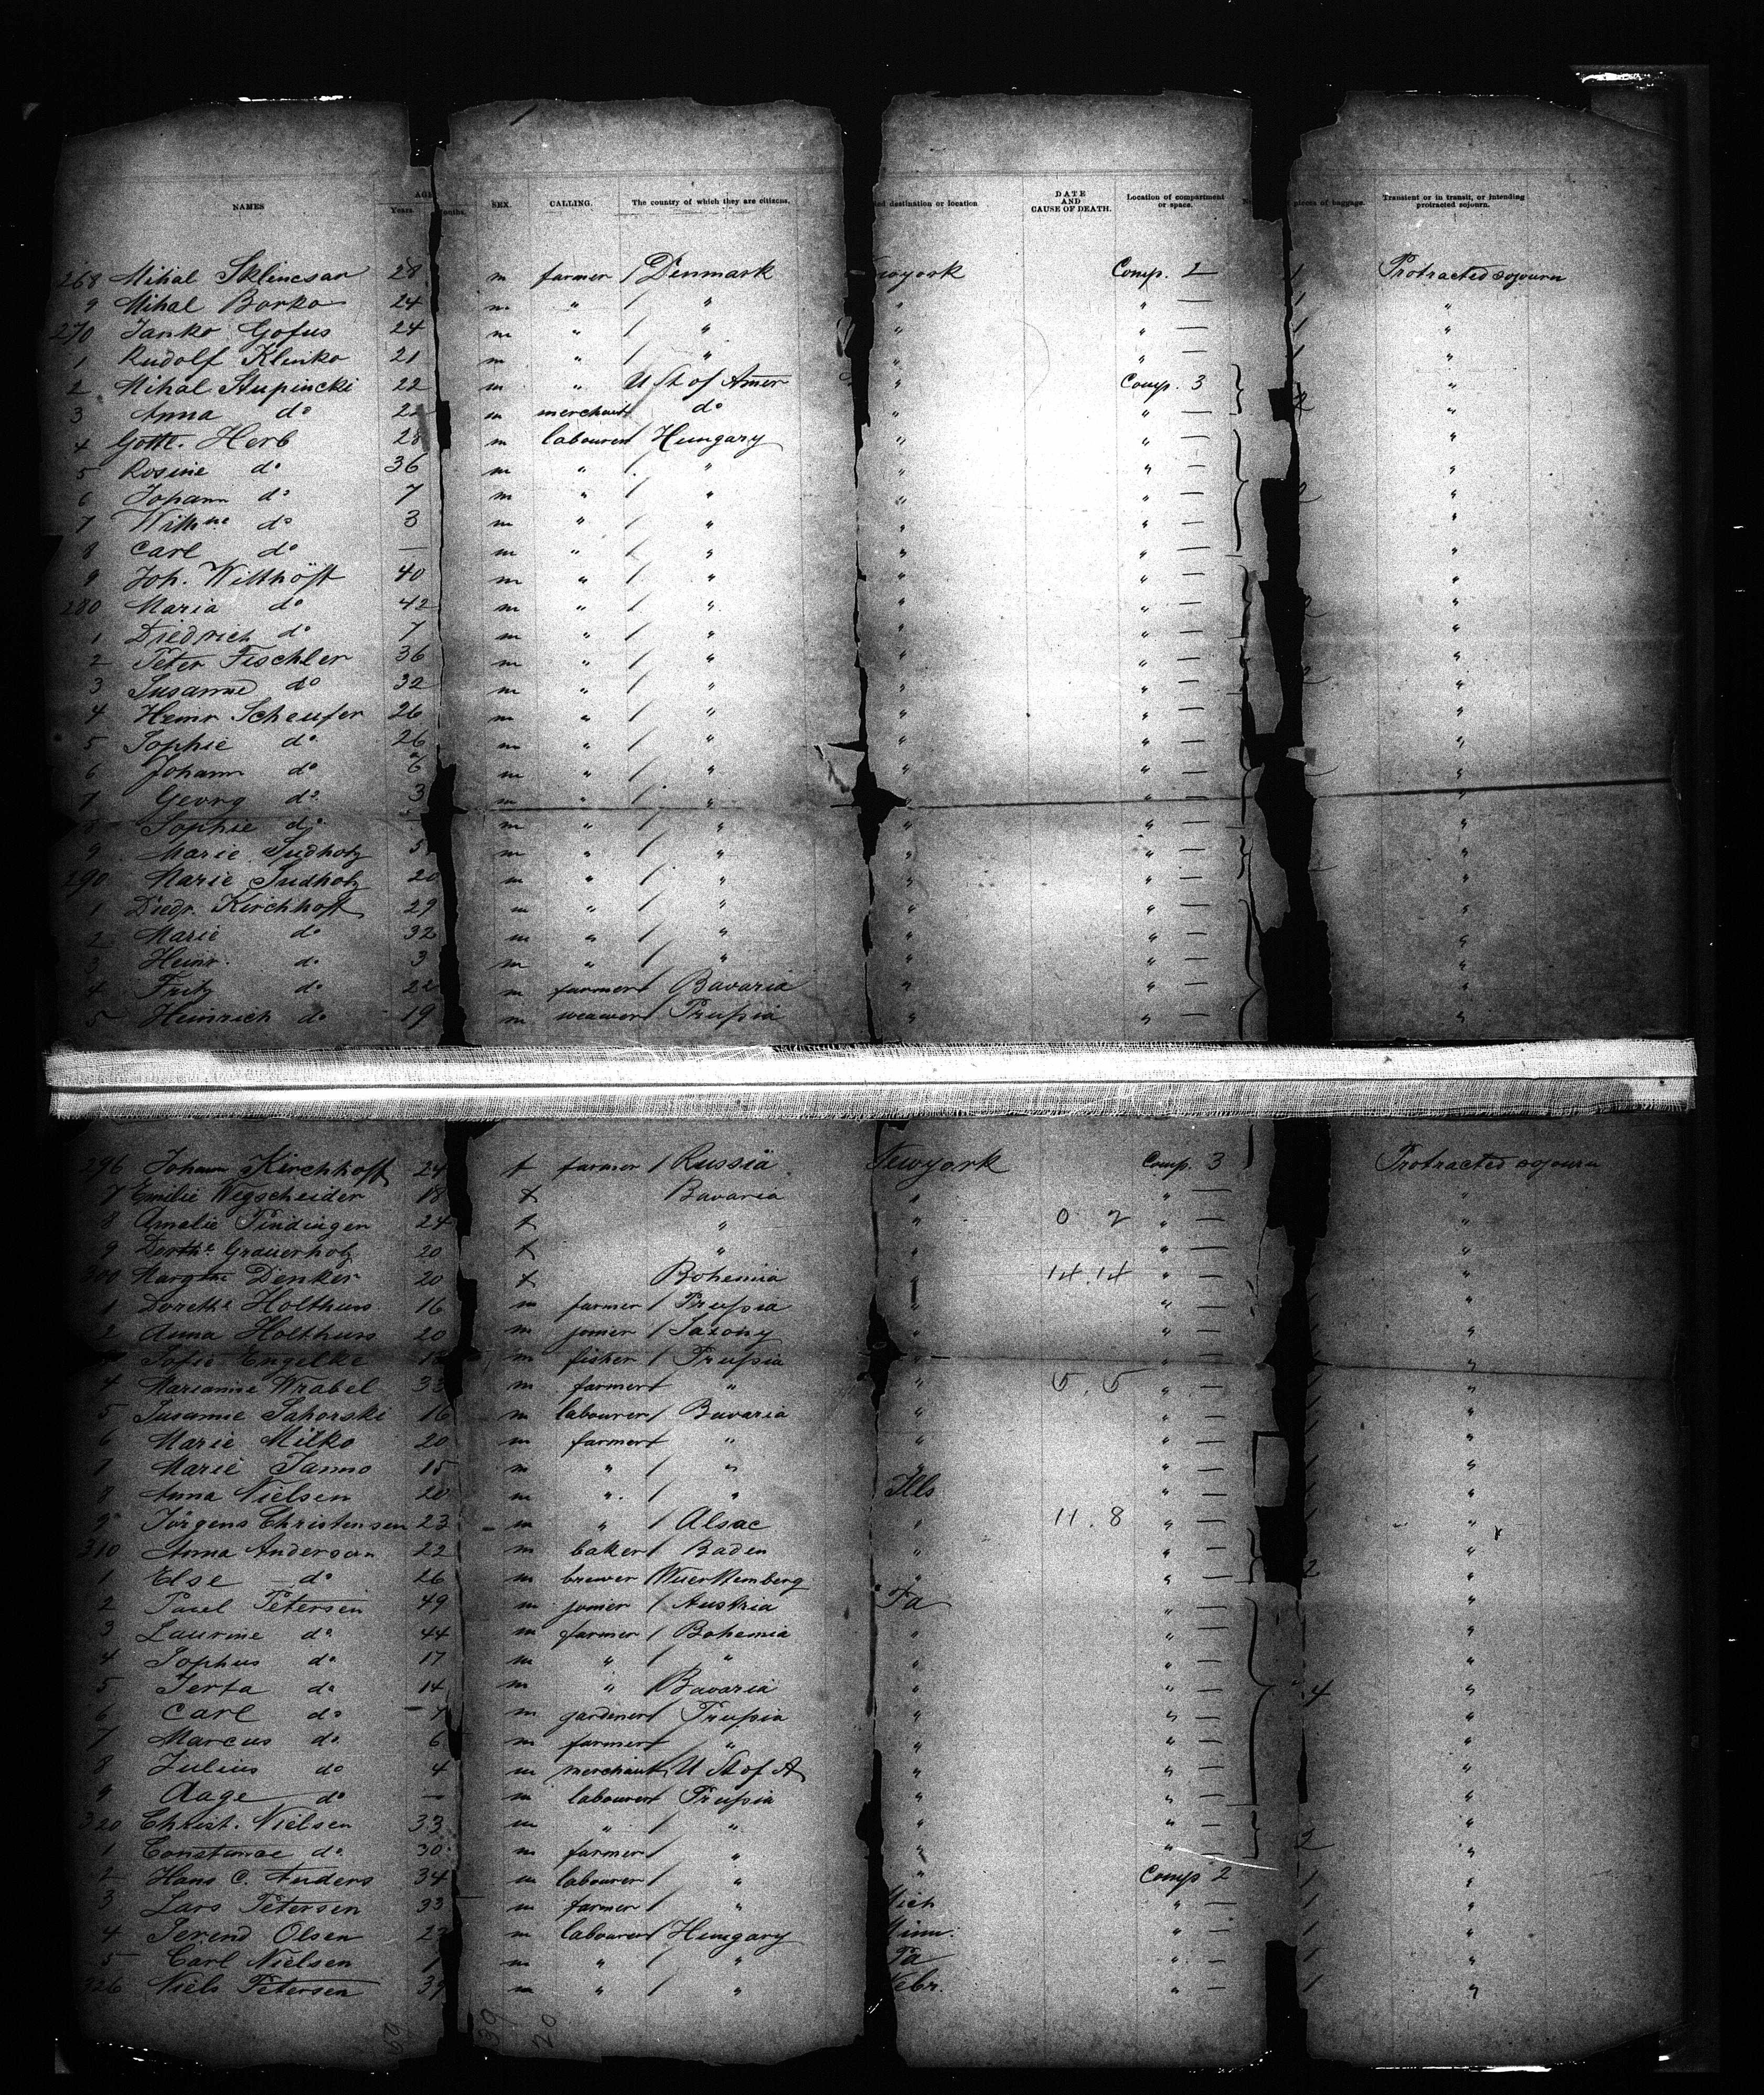 NAMES AGE Years. Months. SEX. CALLING. The country of which they are citizens. destination or location DATE AND CAUSE OF DEATH. Location of compartment or space. pieces of baggage. Transient or in transit, or intending protracted sojourn.
268 Mihal Sklincsar 28 m farmer / Denmark ewyork Comp. 2 1 Protracted sojourn
9 Mihal Borko 24 m " / " " " — 1 "
270 Janko Gofus 24 m " / " " " — 1 "
1 Rudolf Klenko 21 m " / " " " — 1 "
2 Mihal Stupincki 22 m " U St of Amer " Comp. 3 "
3 Anna do 22 m merchant do " " — 2 "
4 Gottl. Herb 28 m labourer / Hungary " " — "
5 Rosine do 36 m " / " " " — "
6 Johann do 7 m " / " " " — 2 "
7 Wilhne do 3 m " / " " " — "
8 Carl do — m " / " " " — "
9 Joh. Witthöft 40 m " / " " " — "
280 Maria do 42 m " / " " " — 2 "
1 Diedrich do 7 m " / " " " — "
2 Peter Fischler 36 m " / " " " — "
3 Susanne do 32 m " / " " " — 2 "
4 Heinr Scheufer 26 m " / " " " — "
5 Sophie do 26 m " / " " " — "
6 Johann do 6 m " / " " " — "
7 Georg do 3 m " / " " " — "
8 Sophie do m " / " " " — "
9 Marie Sudholz 5 m " / " " " — "
290 Marie Sudholz 20 m " / " " " — "
1 Diedr. Kirchhoff 29 m " / " " " — "
2 Marie do 32 m " / " " " — "
3 Heinr. do 3 m " / " " " — "
4 Fritz do 22 m farmer / Bavaria " " — "
5 Heinrich do 19 m weawer / Prussia " " — "
296 Johann Kirchhoff 24 f farmer / Russia Newyork Comp. 3 Protracted sojourn
7 Emilie Wegscheider 18 f Bavaria " " — "
8 Amalie Findingen 24 f " " 0 2 " — "
9 Dorthe Grauerholz 20 f " " " — "
300 Margthe Denker 20 f Bohemia " 14.14 " — "
1 Dorethe Holthurs 16 m farmer / Prussia " " — 1 "
2 Anna Holthurs 20 m joiner / Saxony " " — 1 "
Sofie Engelke 18 m fisher / Prussia " " — 1 "
4 Marianne Wrabel 33 m farmer / " " 5. 5 " — 1 "
5 Susanne Sahorski 16 m labourer / Bavaria " " — 1 "
6 Marie Milko 20 m farmer / " " " — 1 "
7 Marie Janno 15 m " / " " " — 1 "
8 Anna Nielsen 20 m " / " Ills " — 1 "
9 Jörgens Christensen 23 m " / Alsac " 11. 8 " — 1 "
310 Anna Anderson 22 m baker / Baden " " — "
1 Else do 26 m brewer / Wuerttemberg " " — 2 "
2 Paul Petersen 49 m joiner / Austria Pa " — "
3 Laurine do 44 m farmer / Bohemia " " — "
4 Sophus do 17 m " / " " " — "
5 Jerta do 14 m " / Bavaria " " — 4 "
6 Carl do 7 m gardener / Prussia " " — "
7 Marcus do 6 m farmer / " " " — "
8 Julius do 4 m merchant U St of A " " — "
9 Aage do — m labourer / Prussia " " — "
320 Christ. Nielsen 33 m " / " " " — "
1 Constance do 30 m farmer / " " " — 2 "
2 Hans C. Anders 34 m labourer / " " Comp 2 1 "
3 Lars Petersen 33 m farmer / " Mich " — 1 "
4 Jerend Olsen 23 m labourer / Hungary Minn. " — 1 "
5 Carl Nielsen 1 m " / " Pa " — 1 "
326 Niels Petersen 39 m " / " Nebr. " — 1 "
39 20